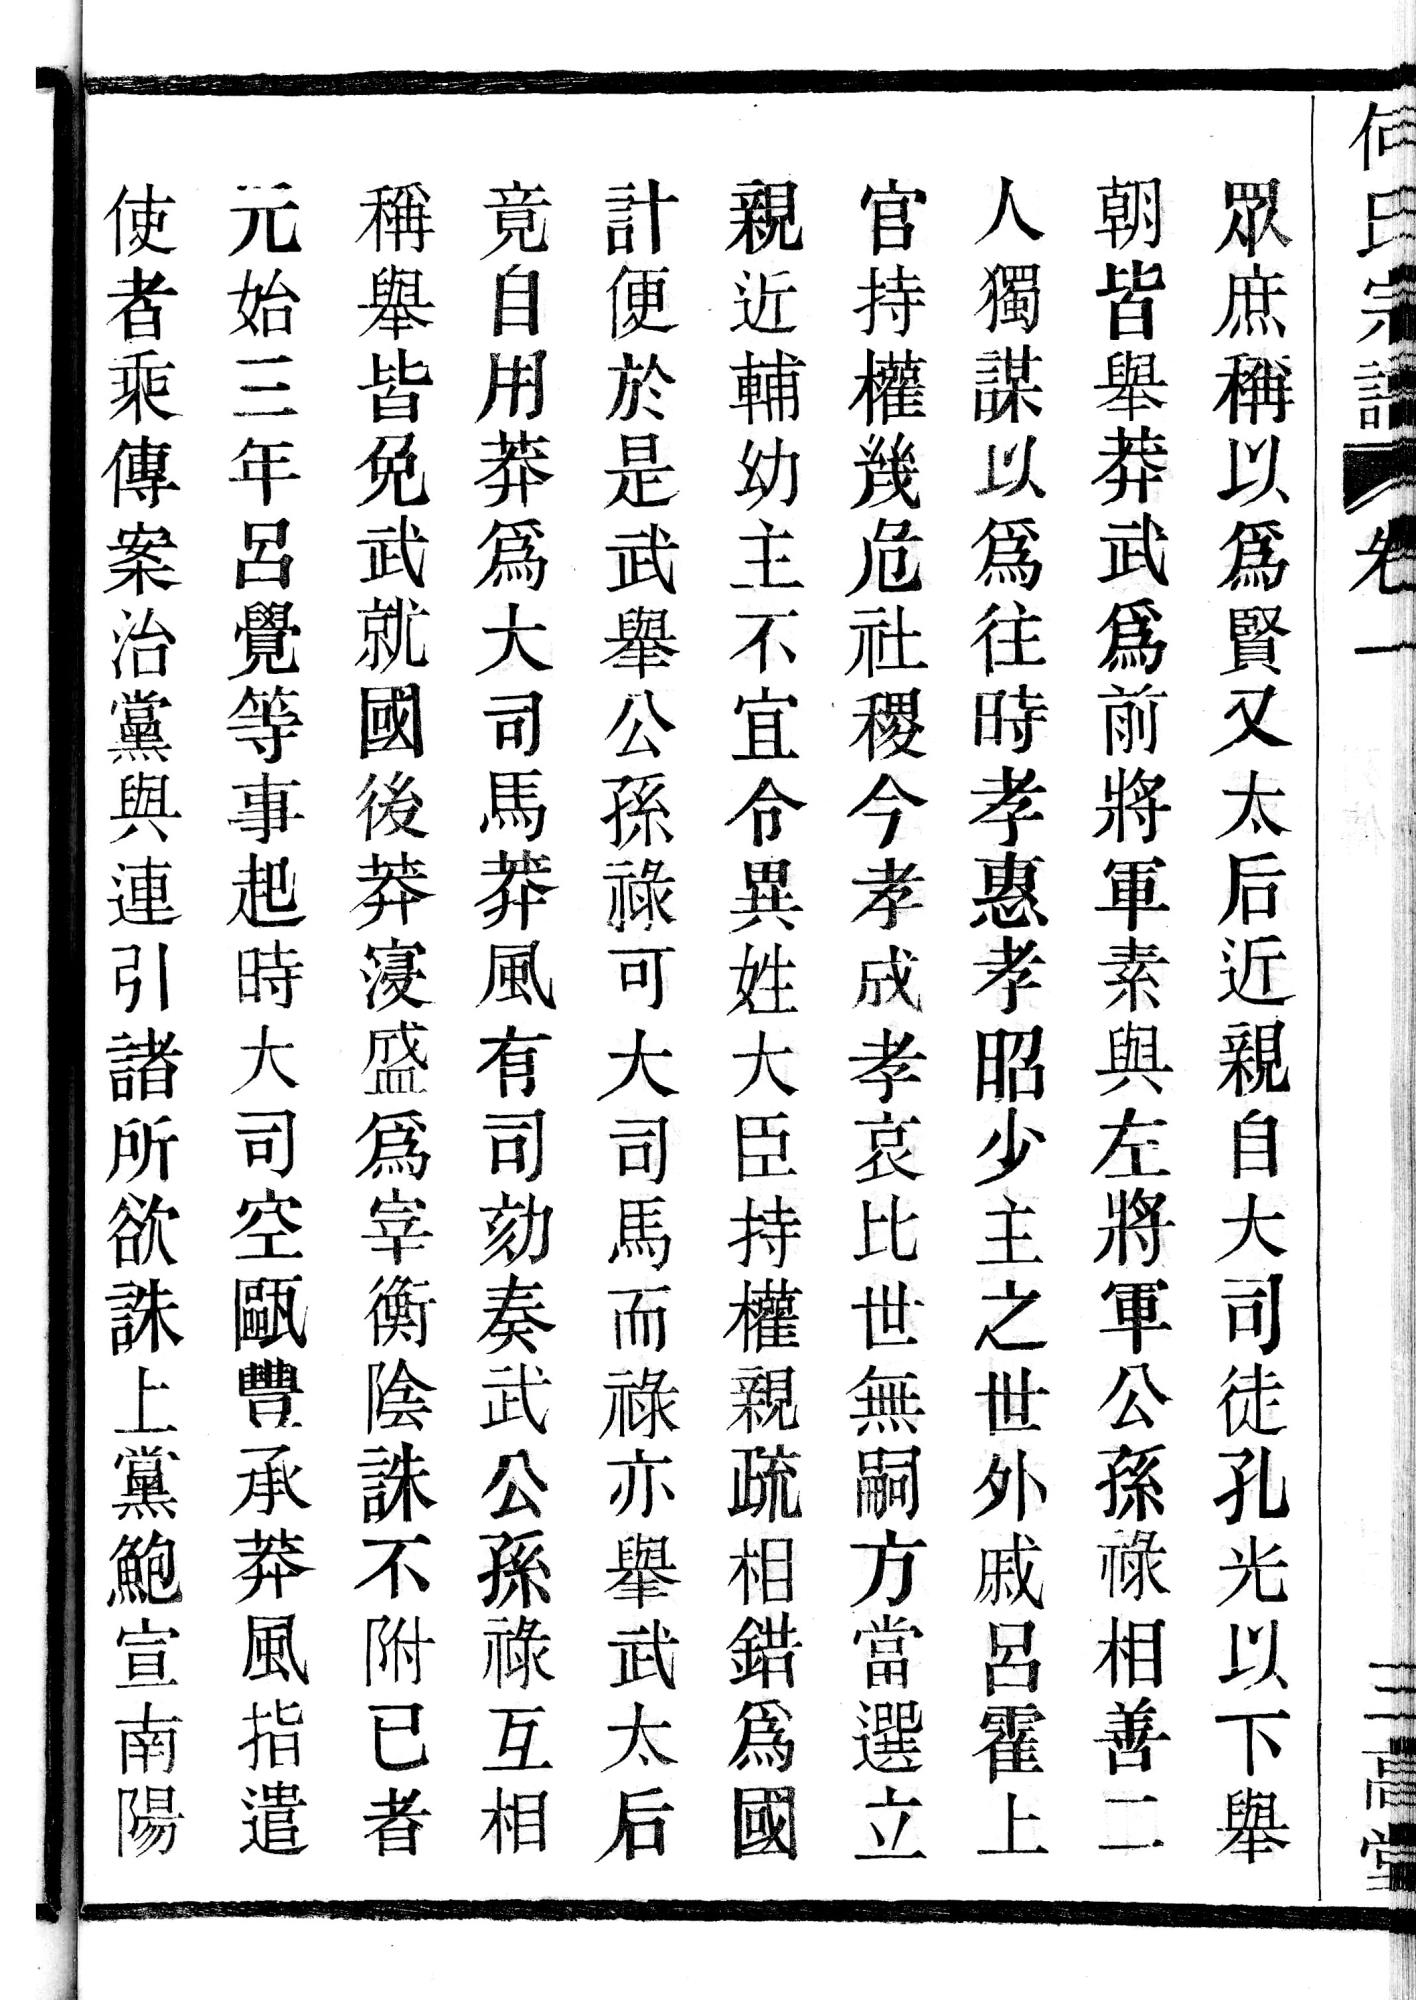 何氏宗譜 卷一 三高堂
眾庶稱以爲賢又太后近親自大司徒孔光以下舉
朝皆舉莽武爲前將軍素與左將軍公孫祿相善二
人獨謀以爲往時孝惠孝昭少主之世外戚呂霍上
官持權幾危社稷今孝成孝哀比世無嗣方當選立
親近輔幼主不宜令異姓大臣持權親疏相錯爲國
計便於是武舉公孫祿可大司馬而祿亦舉武太后
竟自用莽爲大司馬莽風有司劾奏武公孫祿互相
稱舉皆免武就國後莽寖盛爲宰衡陰誅不附已者
元始三年呂覺等事起時大司空甌豐承莽風指遣
使者乘傳案治黨與連引諸所欲誅上黨鮑宣南陽